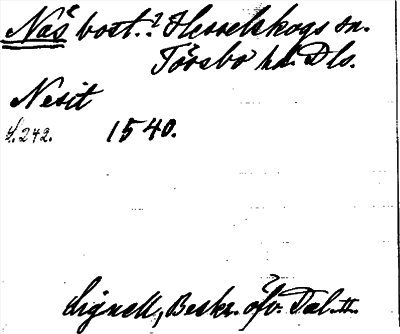 Näs bost.? Herrelskogs sn.
Tössbo hd. Dls.
Nesit
s. 242. 1540.
Lignell, Beskr. öfv. Dal. II.